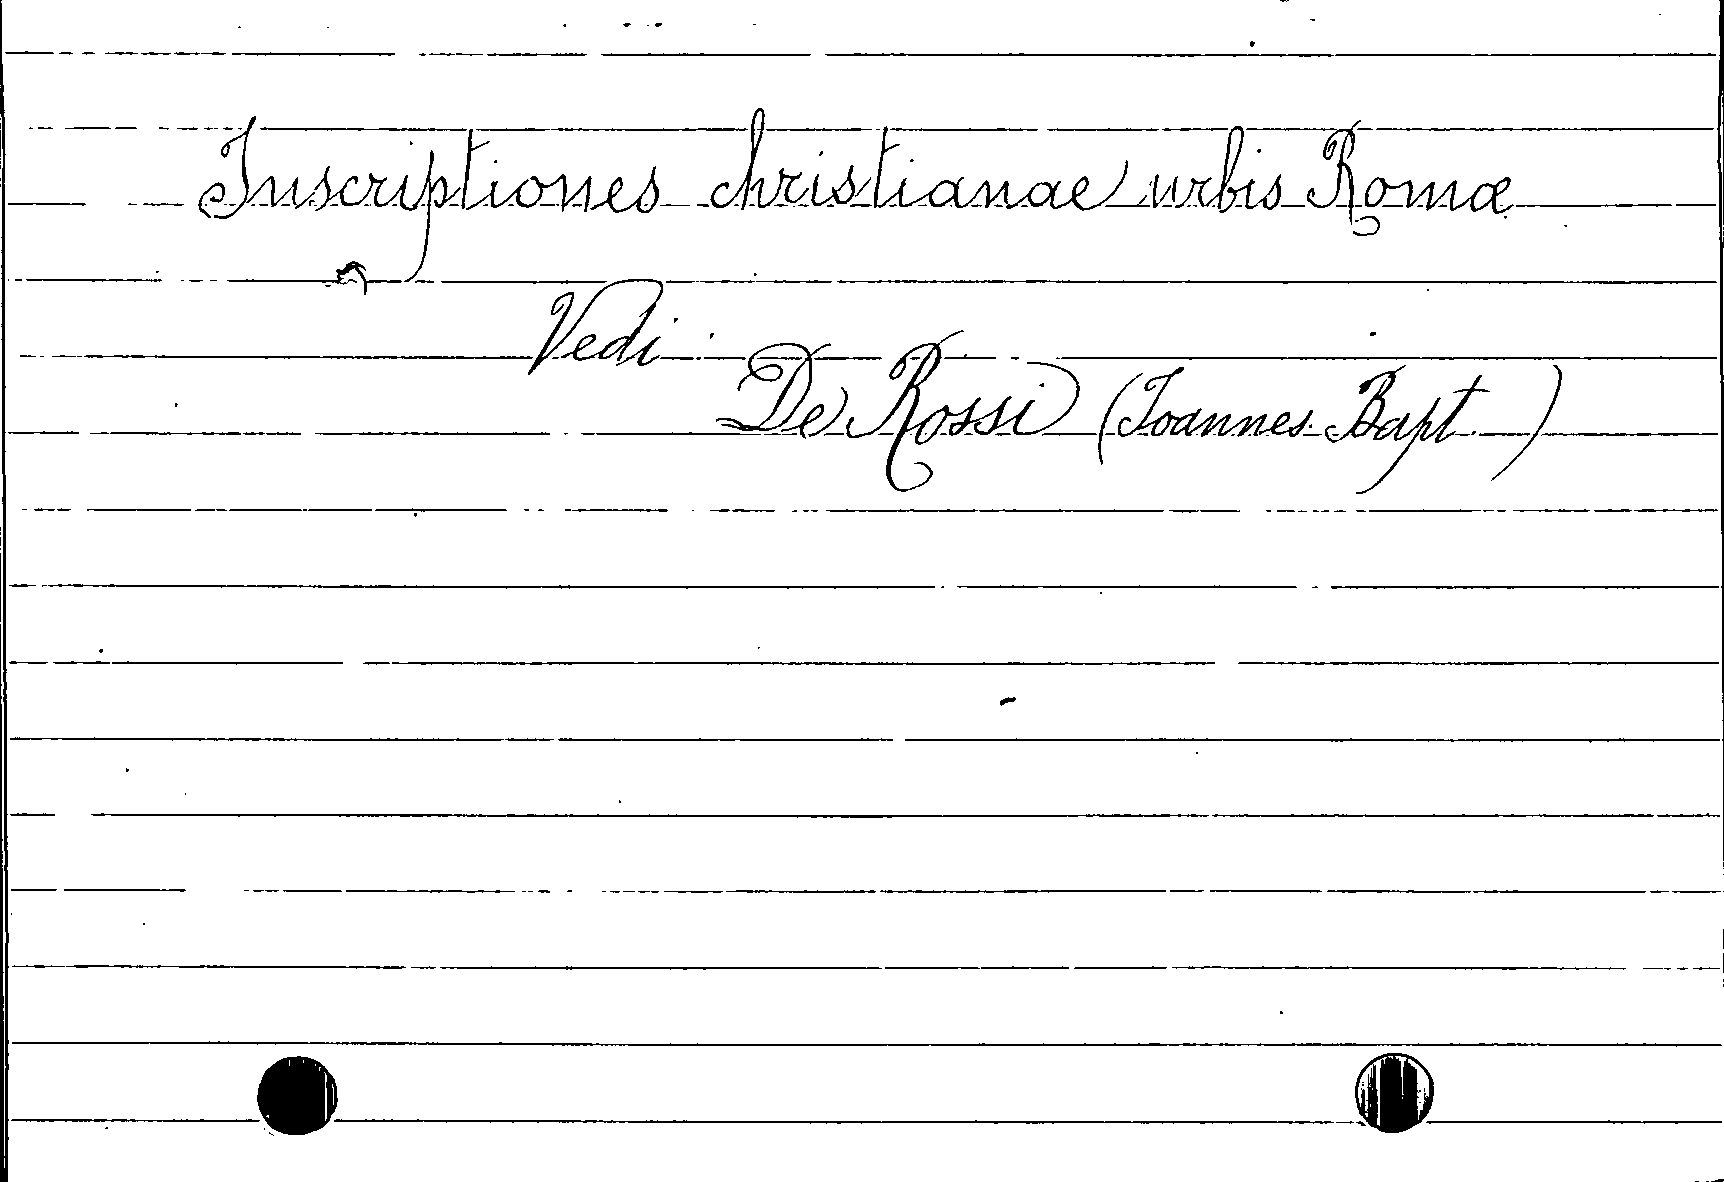 Inscriptiones christianae urbis Romæ
Vedi:
De Rossi (Ioannes Bapt.)